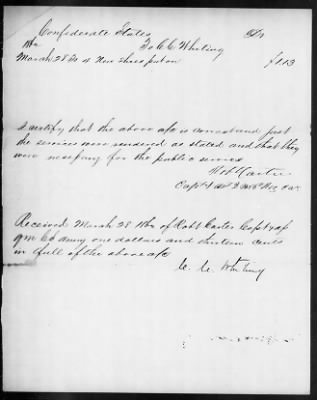 Confederate States Dr
To C C Whiting
March 28 To 4 New shoes put on $1.13
I certify that the above a/c is correct and just
the services were rendered as stated and that they
were necessary for the public service
Robt Carter
Capt &
Received March 28 of Robt Carter Capt & a
q m C S army one dollars and thirteen cents
in full of the above a/c
C. C. Whiting